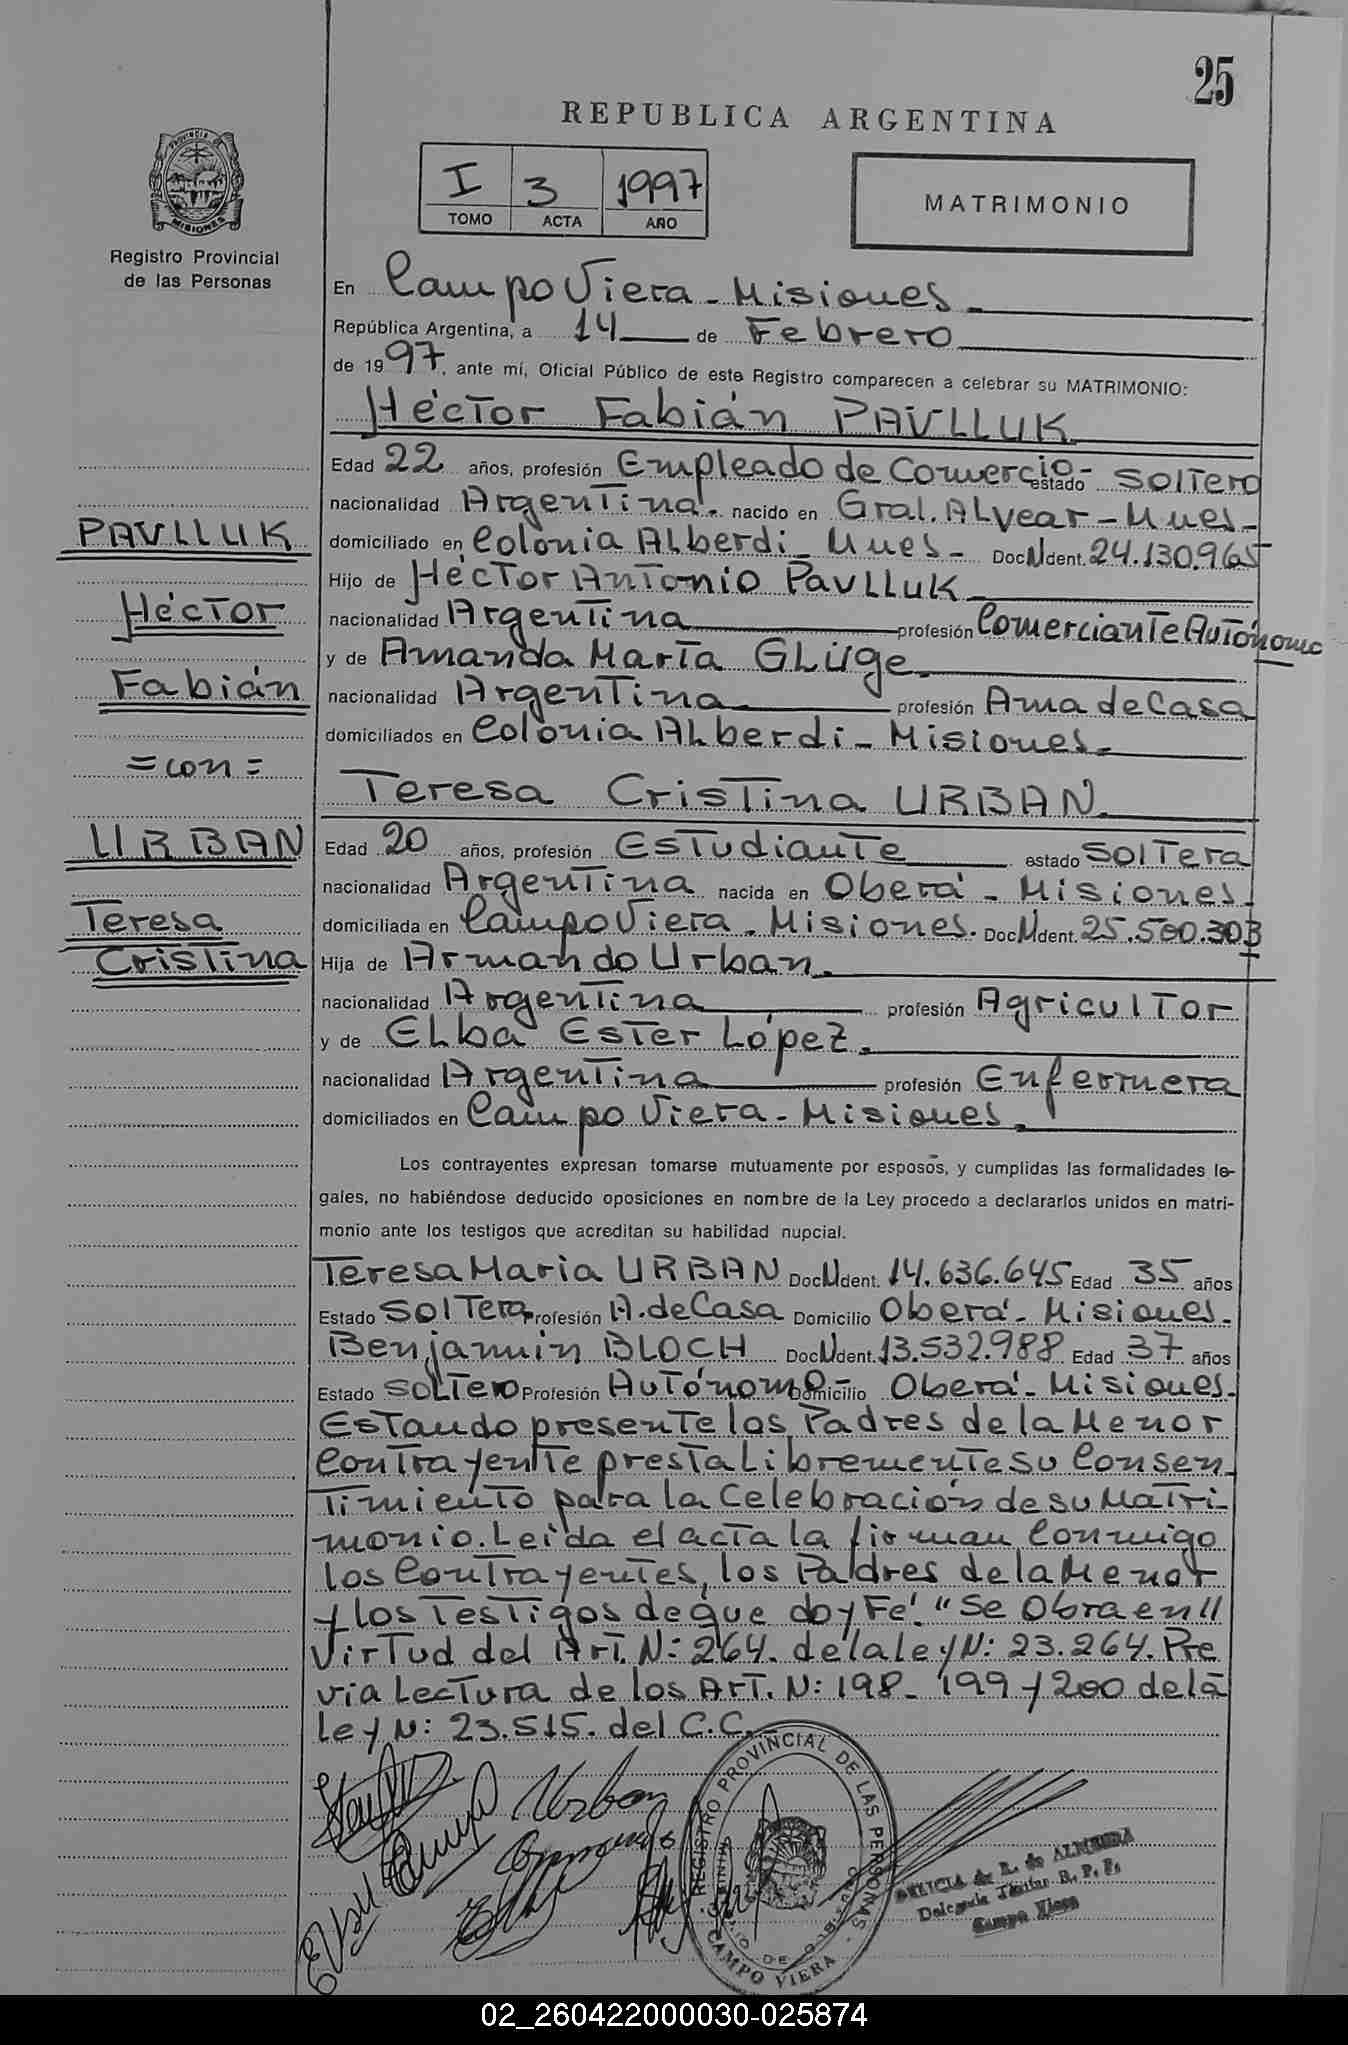 25
REPUBLICA ARGENTINA
PROVINCIA DE
MISIONES
Registro Provincial
de las Personas
I 3 1997
TOMO ACTA AÑO
MATRIMONIO
En Campo Viera - Misiones
República Argentina, a 14 de Febrero
de 1997, ante mí, Oficial Público de este Registro comparecen a celebrar su MATRIMONIO:
Héctor Fabián PAVLLUK
Edad 22 años, profesión Empleado de Comercio - estado Soltero
nacionalidad Argentina. nacido en Gral. Alvear - Mnes -
domiciliado en Colonia Alberdi - Mnes - Doc N Ident. 24.130.965
Hijo de Héctor Antonio Pavlluk
nacionalidad Argentina profesión Comerciante Autónomo
y de Amanda Marta Glüge
nacionalidad Argentina profesión Ama de Casa
domiciliados en Colonia Alberdi - Misiones.
Teresa Cristina URBAN
Edad 20 años, profesión Estudiante estado Soltera
nacionalidad Argentina nacida en Oberá - Misiones
domiciliada en Campo Viera - Misiones. Doc N Ident. 25.500.303
Hija de Armando Urban.
nacionalidad Argentina profesión Agricultor
y de Elba Ester López.
nacionalidad Argentina profesión Enfermera
domiciliados en Campo Viera - Misiones.
PAVLLUK
Héctor
Fabián
=con=
URBAN
Teresa
Cristina
Los contrayentes expresan tomarse mutuamente por esposos, y cumplidas las formalidades le-
gales, no habiéndose deducido oposiciones en nombre de la Ley procedo a declararlos unidos en matri-
monio ante los testigos que acreditan su habilidad nupcial.
Teresa Maria URBAN Doc N Ident. 14.636.645 Edad 35 años
Estado Soltera Profesión A. de Casa Domicilio Oberá - Misiones.
Benjamin BLOCH Doc N Ident. 13.532.988 Edad 37 años
Estado Soltero Profesión Autónomo - Domicilio Oberá - Misiones.
Estando presente los Padres de la Menor
Contrayente presta Libremente su Consen-
timiento para la Celebración de su Matri-
monio. Leida el acta la firman Conmigo
los Contrayentes, los Padres de la Menor
y los Testigos de que doy Fé. "Se Obra en"
Virtud del Art. N: 264. de la ley N: 23.264. Pre
via Lectura de los Art. N: 198 - 199 y 200 de la
Ley N: 23.515. del C.C.
Urban
Armando
REGISTRO PROVINCIAL DE LAS PERSONAS
CAMPO VIERA
MINISTERIO DE GOBIERNO
DELICIA de R. de ALMEIDA
Delegada Titular R. P. P.
Campo Viera
02_260422000030-025874